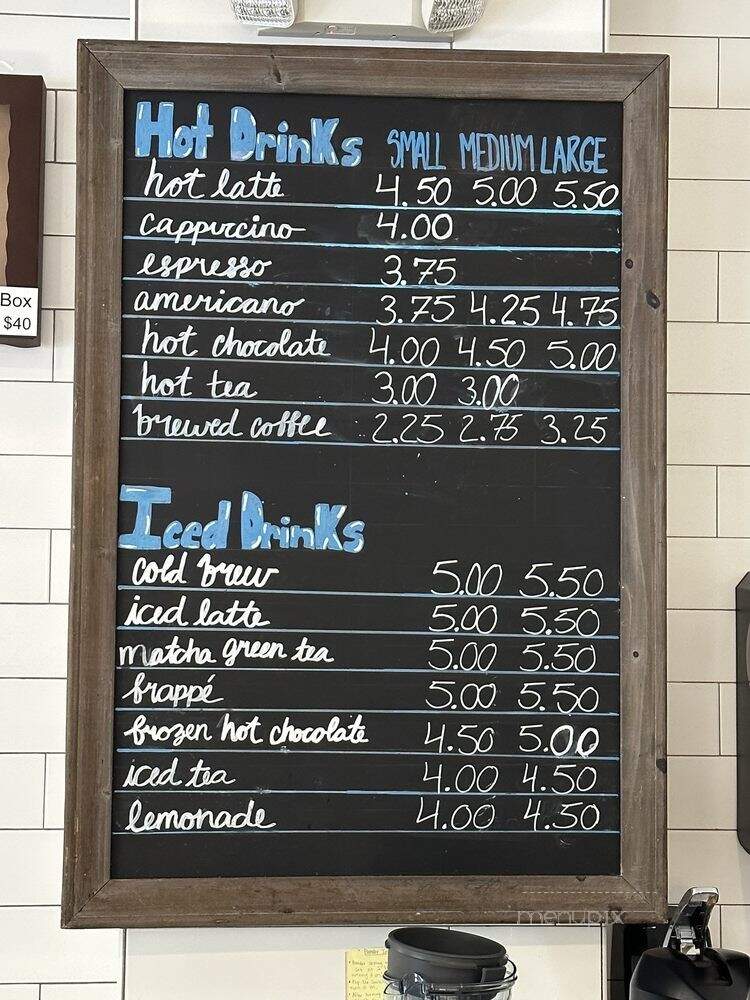 Hot Drinks SMALL MEDIUM LARGE
hot latte 4.50 5.00 5.50
cappuccino 4.00
espresso 3.75
americano 3.75 4.25 4.75
hot chocolate 4.00 4.50 5.00
hot tea 3.00 3.00
brewed coffee 2.25 2.75 3.25
Iced Drinks
cold brew 5.00 5.50
iced latte 5.00 5.50
matcha green tea 5.00 5.50
frappé 5.00 5.50
frozen hot chocolate 4.50 5.00
iced tea 4.00 4.50
lemonade 4.00 4.50
Box
$40
menupix